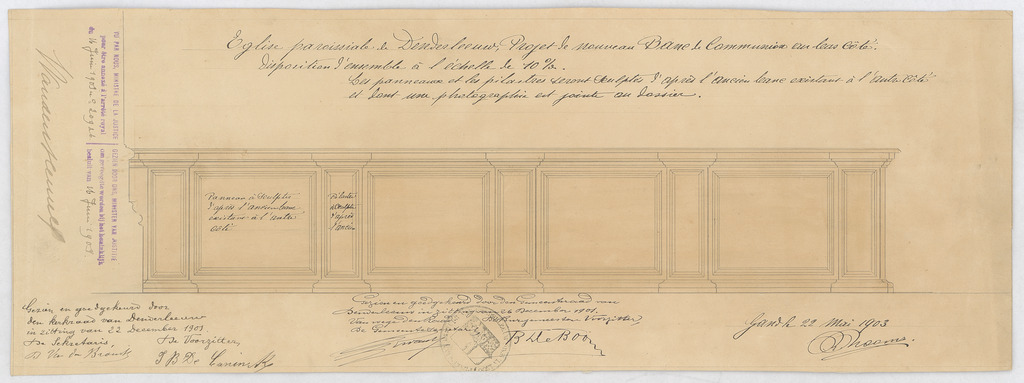 Eglise paroissiale de Denderleeuw, Projet de nouveau Banc de Communion au bas côté.
disposition d'ensemble à l'échelle de 10%.
Les panneaux et les pilastres seront sculptés d'après l'ancien banc existant à l'autre côté
et dont une photographie est jointe au dossier.
VU PAR NOUS, MINISTRE DE LA JUSTICE
pour être annexé à l'arrêté royal
du 16 Juin 1905 n°
GEZIEN DOOR ONS, MINISTER VAN JUSTITIE,
om gevoegd te worden bij het koninklijk
besluit van 16 Juni 1905
Panneau à sculpter
d'après l'ancien banc
existant à l'autre
côté
Pilastre
sculpté
d'après
l'ancien
Gezien en goedgekeurd door
den kerkraad van Denderleeuw
in zitting van 22 December 1903
De Sekretaris, De Voorzitter,
Gezien en goedgekeurd door den Gemeenteraad van
Denderleeuw in zitting van 26 December
Van wege den Raad: De Burgemeester Voorzitter,
De Gemeentesekretaris
Gand le 22 Mai 1903